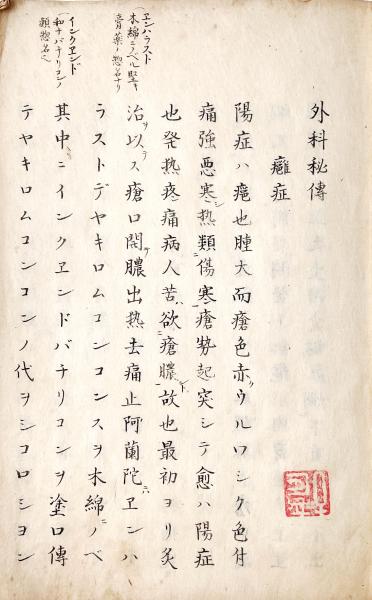 外科秘傳
癰症
陽症ハ癰也腫大而瘡色赤クウルワシク色付
痛強悪寒シ熱類傷寒瘡勢起突シテ愈ハ陽症
也発熱疼痛病人苦ハ欲瘡膿ント故也最初ヨリ灸
治ヲ以テス瘡口開キ膿出熱去痛止阿蘭陀ニハヱンハ
ラストデヤキロムコンコンスヲ木綿ニノベ
其中ニインクヱンドバチリコンヲ塗ロ傳
テヤキロムコンコンノ代ヲシコロシヨン
ヱンハラスト
木綿ニノベル堅キ
膏薬ノ惣名ナリ
インクヱンド
和ナバチリコンノ
類惣名也